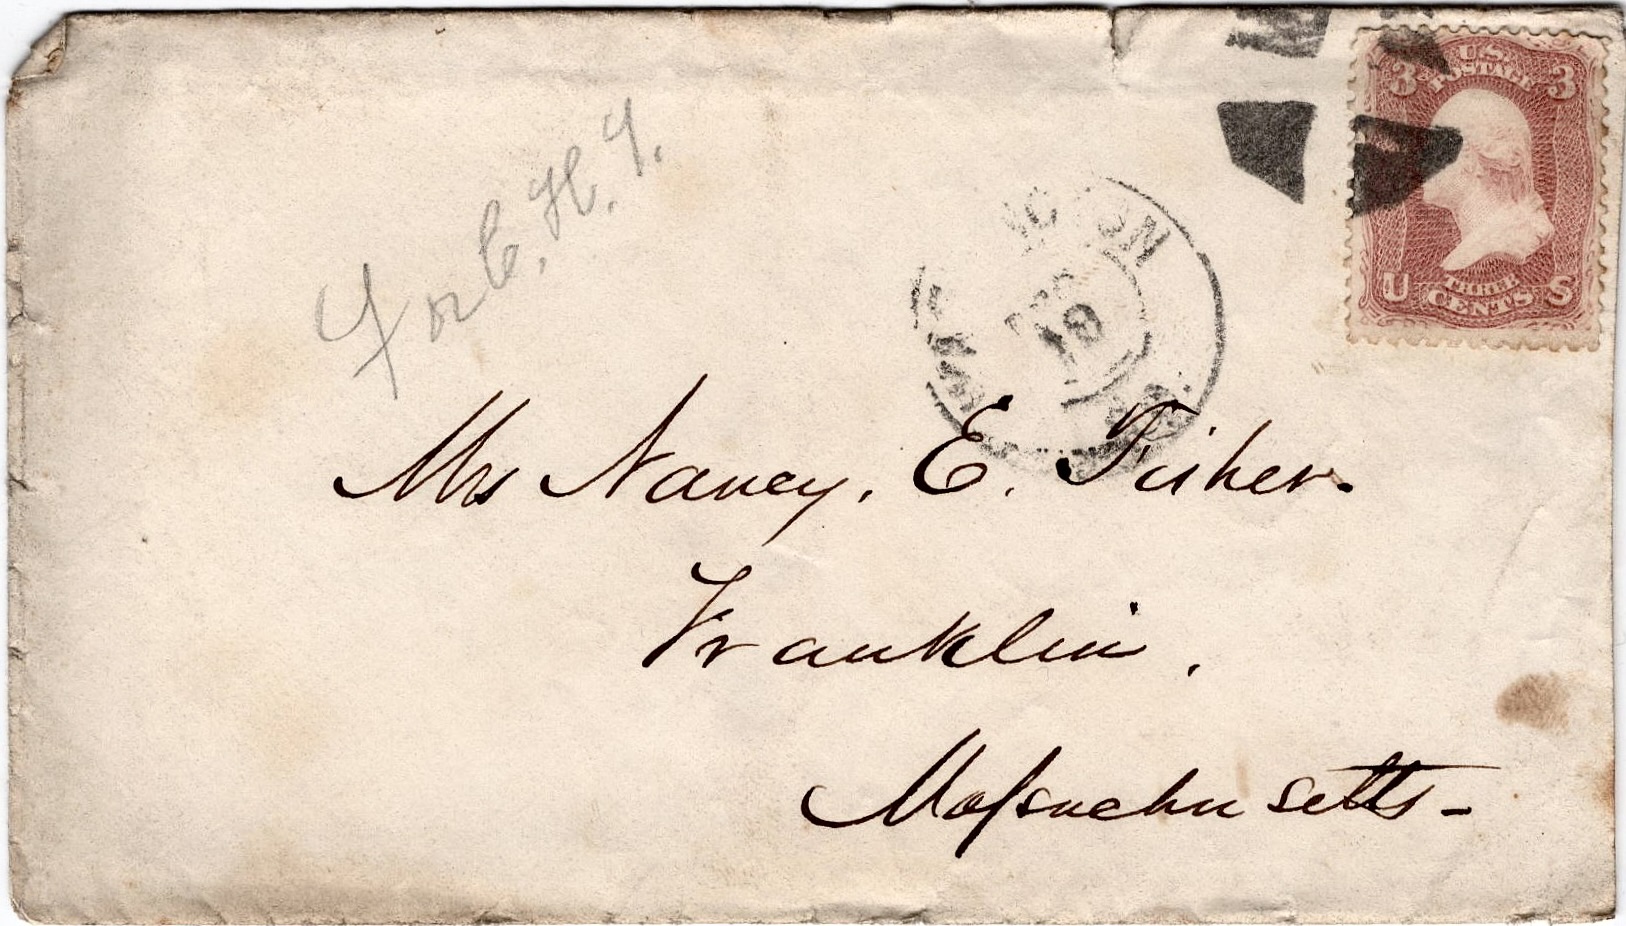 3 U.S. POSTAGE 3
U THREE CENTS S
DEC
For C. H. F.
Mrs Nancy. E. Fisher.
Franklin.
Massachusetts-